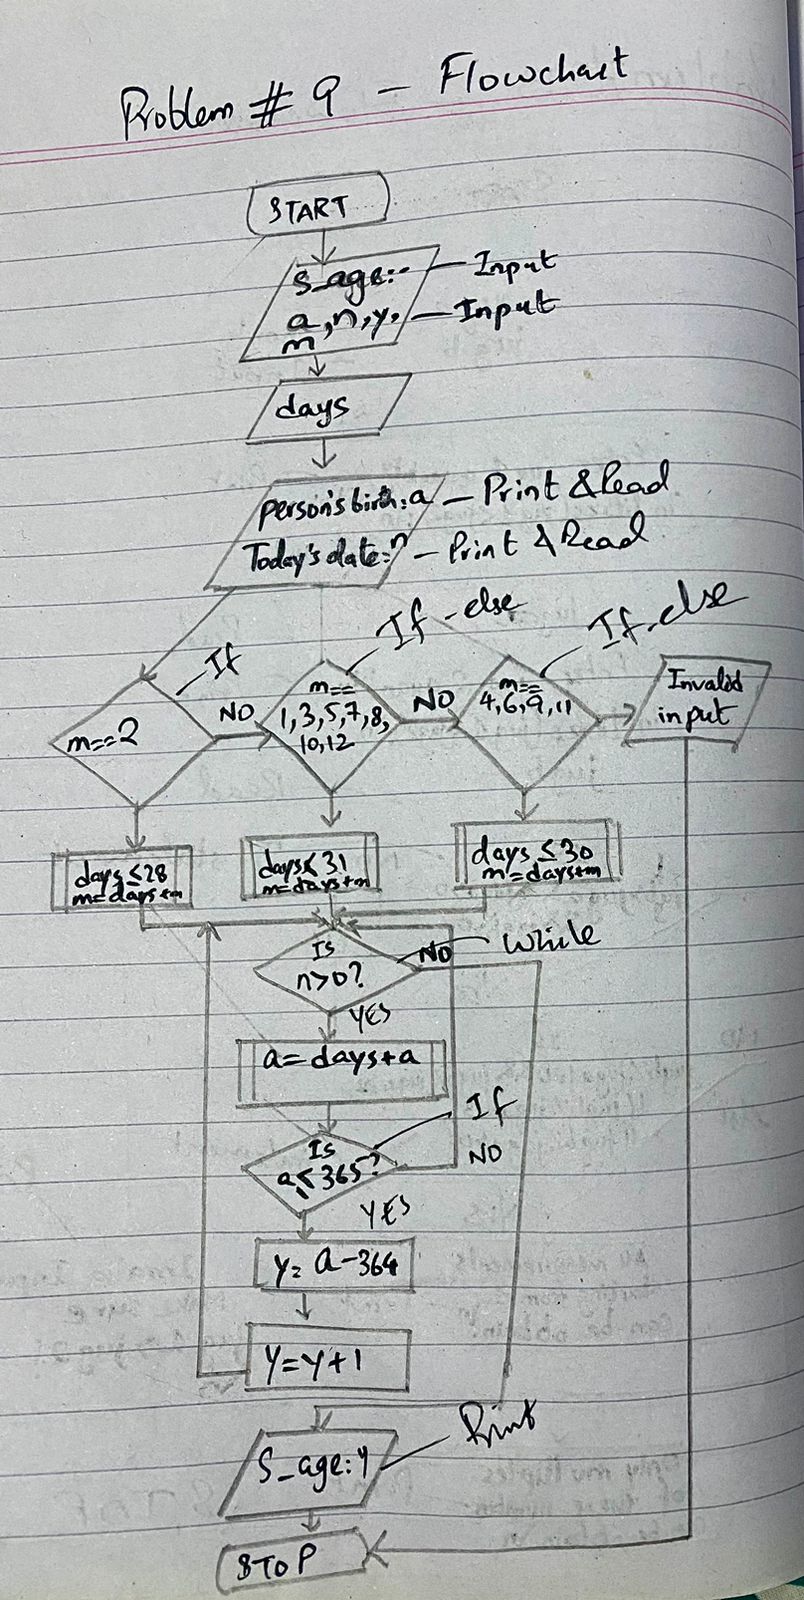 Problem # 9 - Flowchart
START
S_age:- - Input
a, n, y, - Input
m
days
person's birth: a - Print & Read
Today's date: n - Print & Read
If
If-else
If-else
m==2
NO
m==
1,3,5,7,8,
10,12
NO
m==
4,6,9,11
Invalid
input
days≤28
m=days+m
days≤31
m=days+m
days≤30
m=days+m
Is
n>0?
NO
While
YES
a=days+a
If
Is
a≤365?
NO
YES
y= a-364
y=y+1
Print
S_age:y
STOP